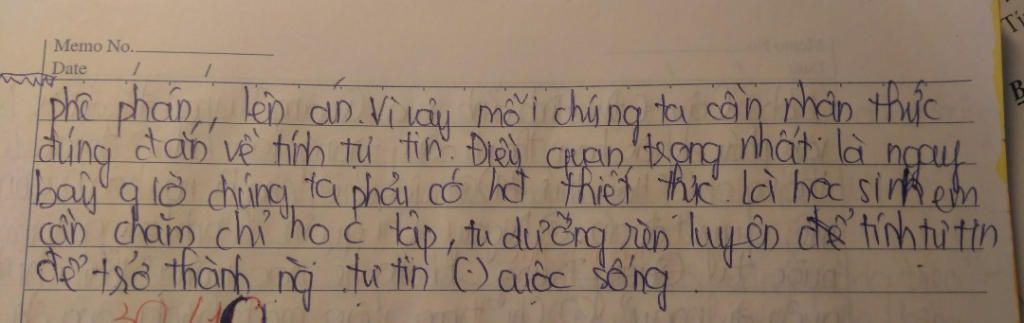 Memo No.
Date / /
phê phán, lên án. Vì vậy mỗi chúng ta cần nhận thức
đúng đắn về tính tự tin. Điều quan trọng nhất là ngay
bây giờ chúng ta phải có hđ thiết thực. Là học sinh em
cần chăm chỉ học tập, tu dưỡng rèn luyện để tính tự tin
để trở thành ng tự tin (.) cuộc sống
30/10